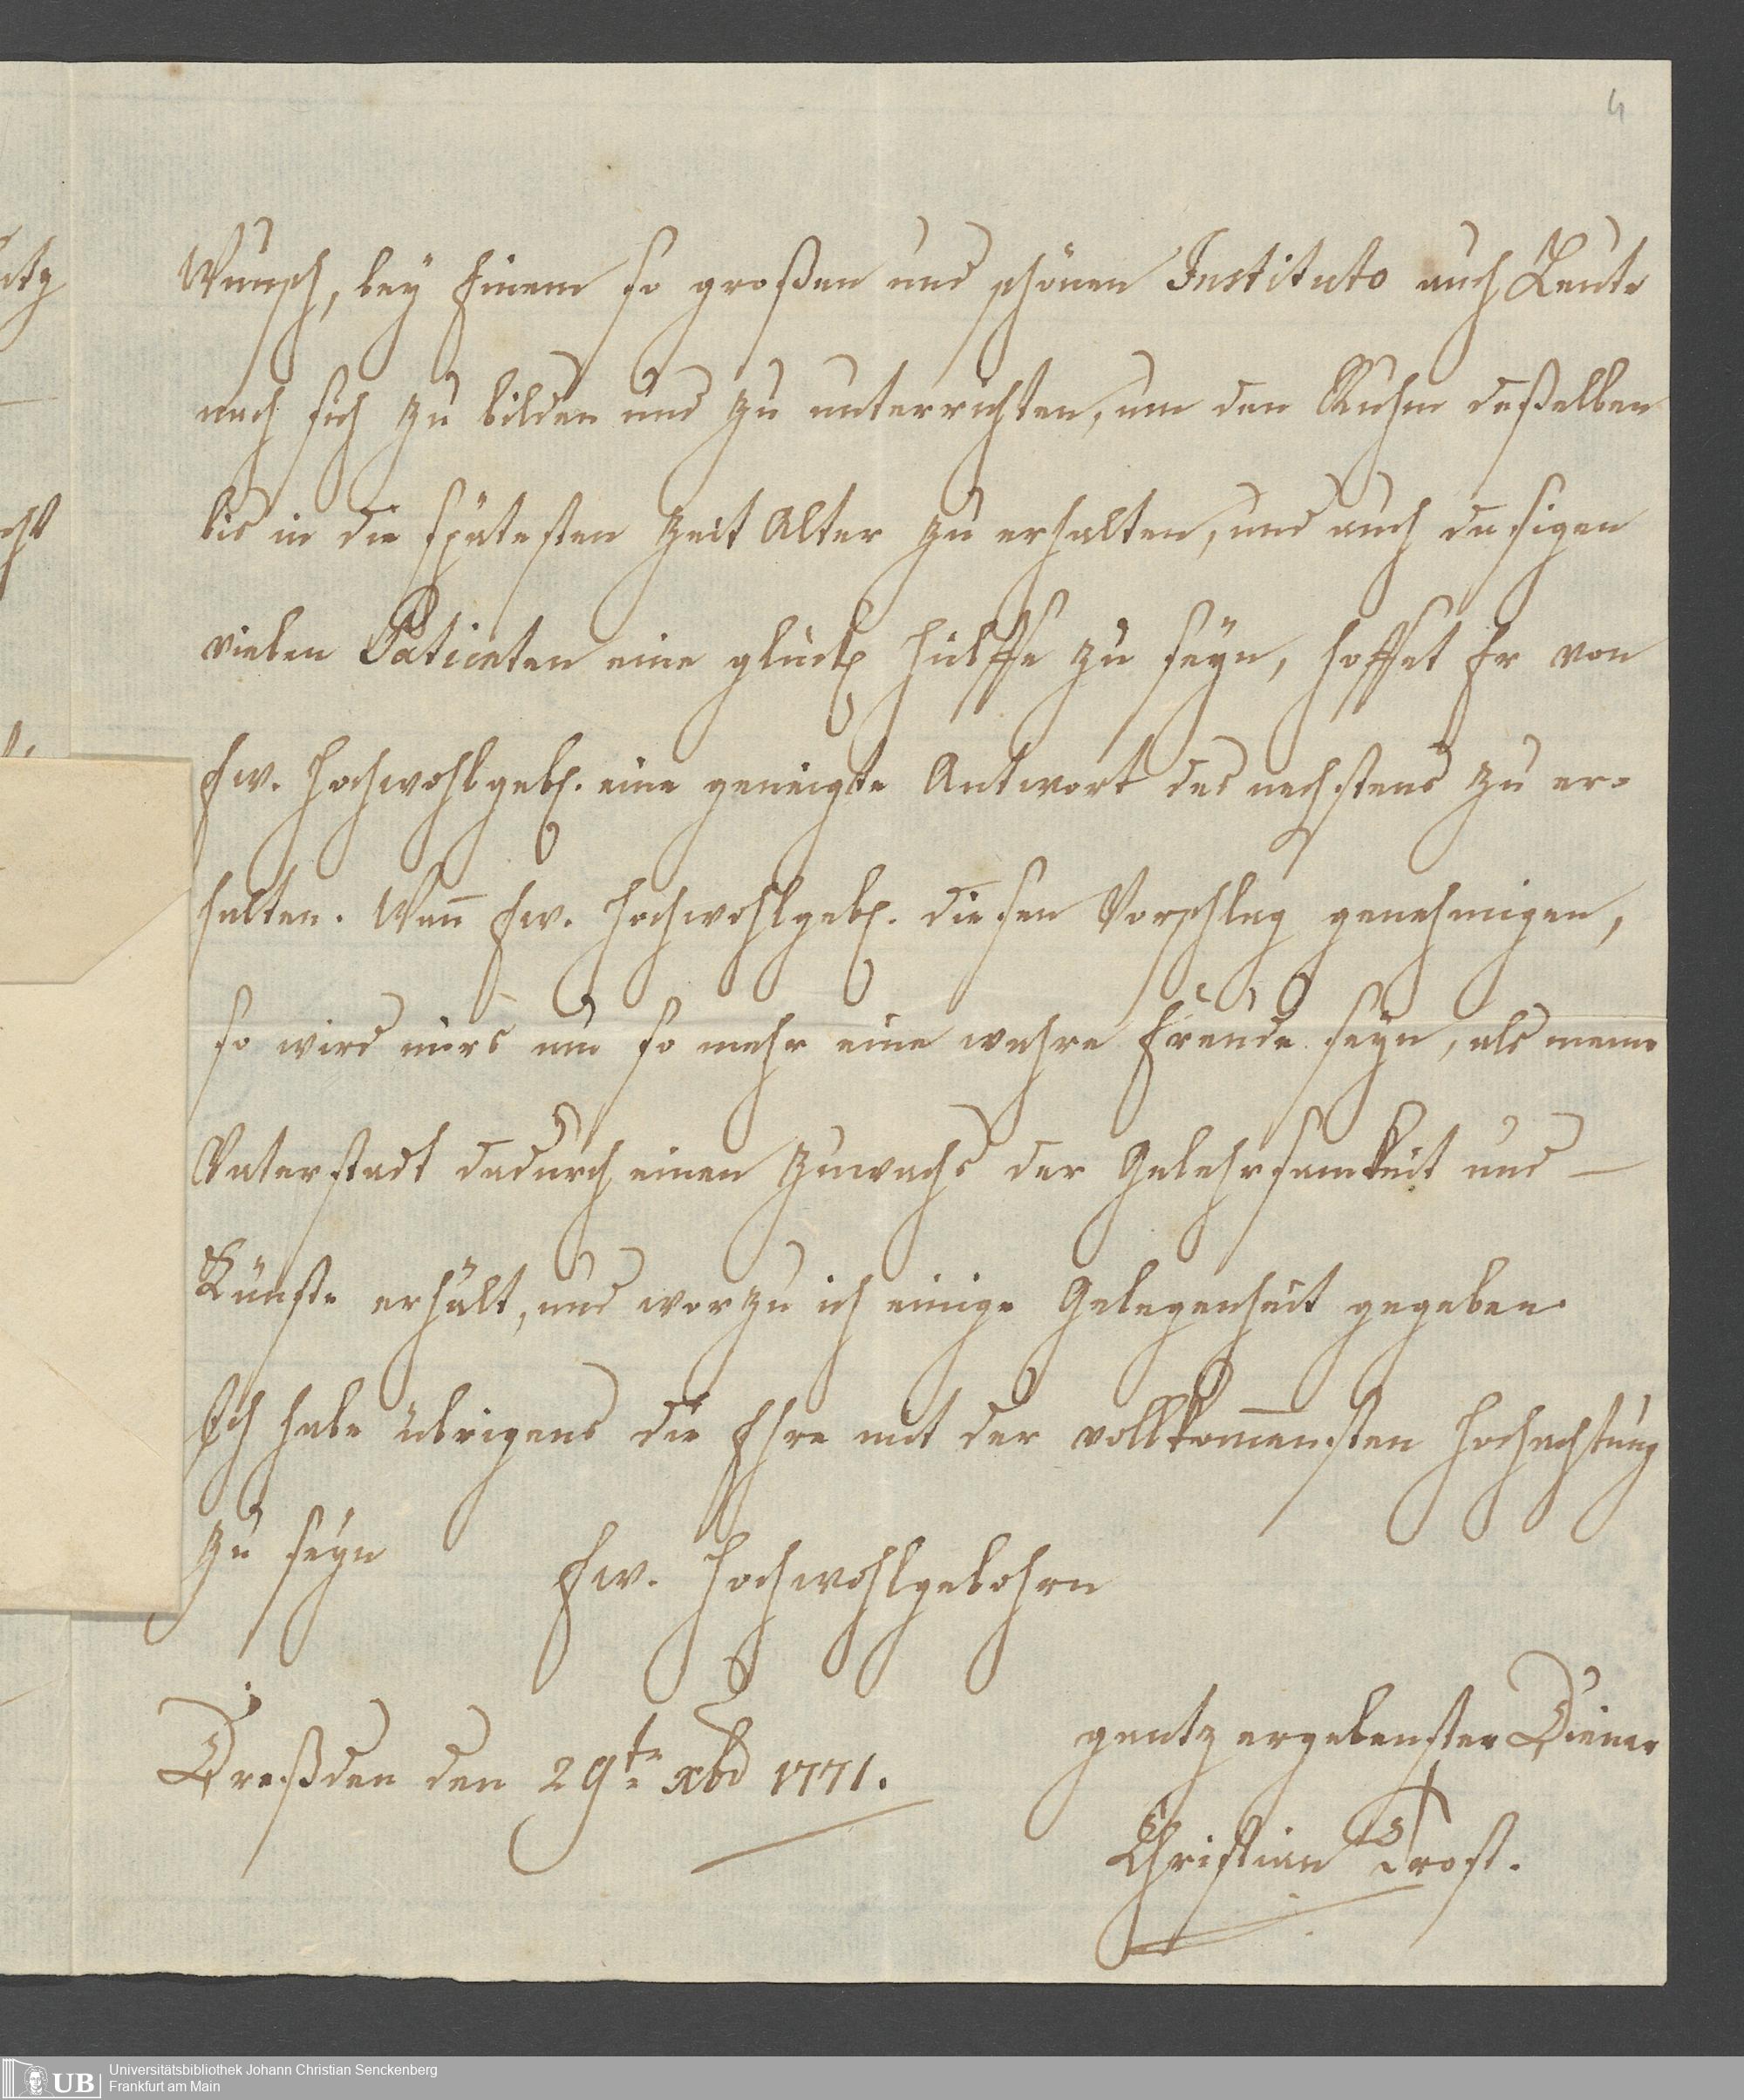 4
Wunsch, bey Einem so großen und schönen Instituto auch Leute
nach sich zu bilden und zu unterrichten, um den Ruhm deßelben
bis in die spätesten Zeit Alter zu erhalten, und auch dasigen
vielen Patienten eine glückl. Hülffe zu seyn, hoffet Er von
Ew. Hochwohlgeb. eine geneigte Antwort des nechstens zu er-
halten. Wenn Ew. Hochwohlgeb. diesen Vorschlag genehmigen,
so wird mirs um so mehr eine wahre Freude seyn, als meine
Vaterstadt dadurch einen Zuwachs der Gelehrsamkeit und —
Künste erhält, und worzu ich einige Gelegenheit gegeben
Ich habe übrigens die Ehre mit der vollkommensten Hochachtung
zu seyn
Ew. Hochwohlgebohrn
gantz ergebenster Diener
Dreßden den 29te xbr 1771.
Christian Trost.
UB Universitätsbibliothek Johann Christian Senckenberg
Frankfurt am Main